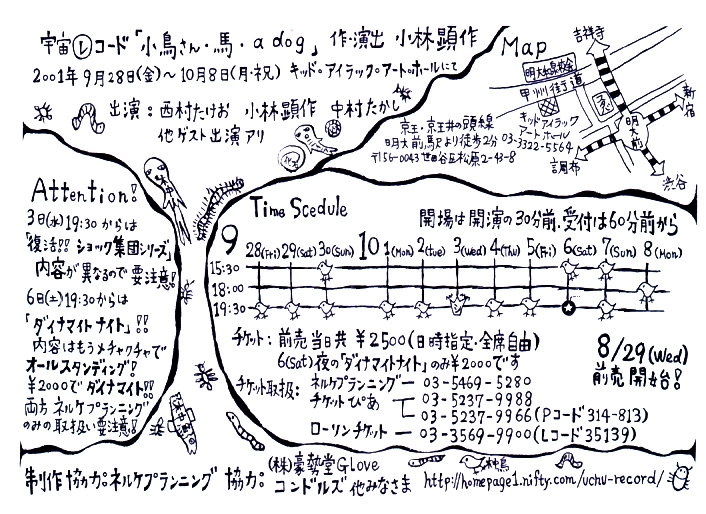 宇宙レコード「小鳥さん・馬・a dog」作・演出 小林顕作
2001年9月28日(金)～10月8日(月・祝) キッド・アイラック・アート・ホールにて
出演：西村たけお 小林顕作 中村たかし
他ゲスト出演アリ
Map
吉祥寺
甲州街道
キッド・アイラック
アートホール
明大前
新宿
調布
渋谷
京王・京王井の頭線
明大前駅より徒歩2分 03-3322-5564
〒156-0043 世田谷区松原2-43-8
Attention!
3日(水)19:30からは
「復活!! ショック集団シリーズ」
内容が異なるので要注意!
6日(土)19:30からは
「ダイナマイトナイト」!!
内容はもうメチャクチャで
オールスタンディング!
¥2000でダイナマイト!!
両方ネルケプランニング
のみの取扱い要注意!
Time Scedule
開場は開演の30分前.受付は60分前から
9 28(Fri) 29(Sat) 30(Sun) 10 1(Mon) 2(tue) 3(wed) 4(Thu) 5(Fri) 6(Sat) 7(Sun) 8(Mon)
15:30
18:00
19:30
チケット：前売当日共 ¥2500(日時指定・全席自由)
6(Sat)夜の「ダイナマイトナイト」のみ¥2000です
8/29(Wed)
前売開始!
チケット取扱：ネルケプランニング－03-5469-5280
チケットぴあ 03-5237-9988
03-5237-9966(Pコード314-813)
ローソンチケット－03-3569-9900(Lコード35139)
制作協力：ネルケプランニング 協力：(株)豪勢堂GLove
コンドルズ 他みなさま http://homepage1.nifty.com/uchu-record/